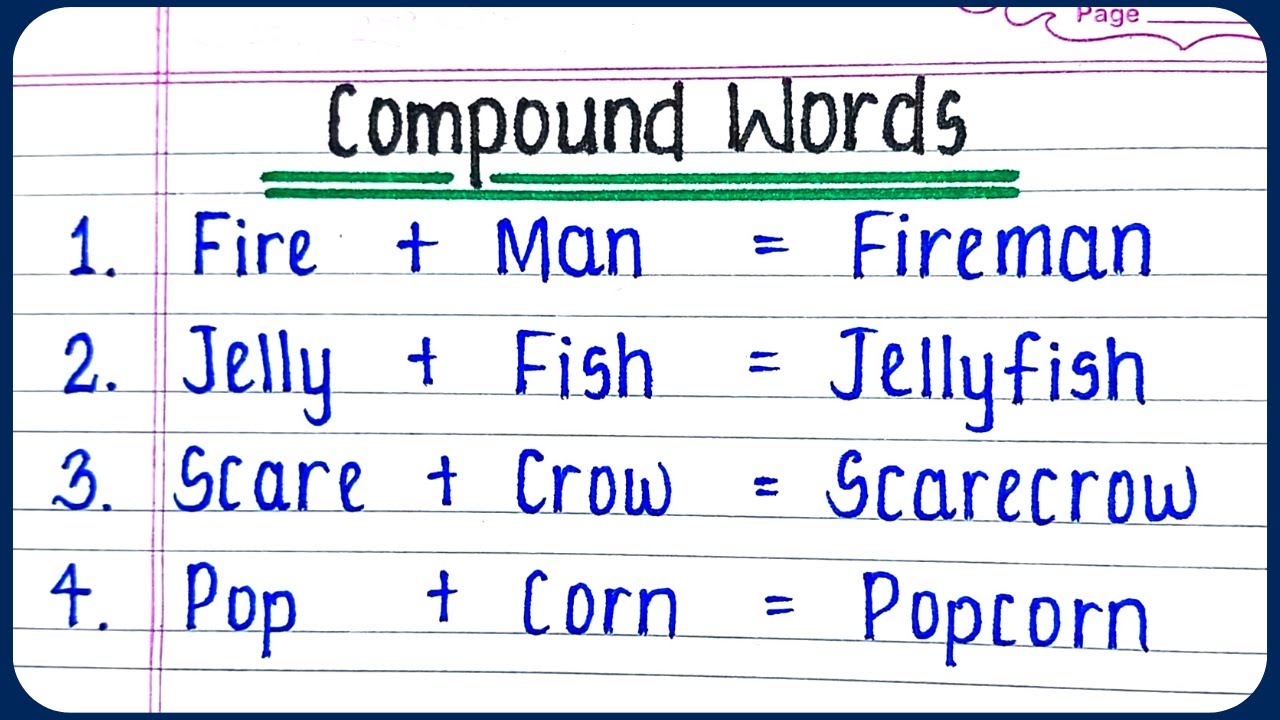 Page
Compound Words
1. Fire + Man = Fireman
2. Jelly + Fish = Jellyfish
3. Scare + Crow = Scarecrow
4. Pop + Corn = Popcorn